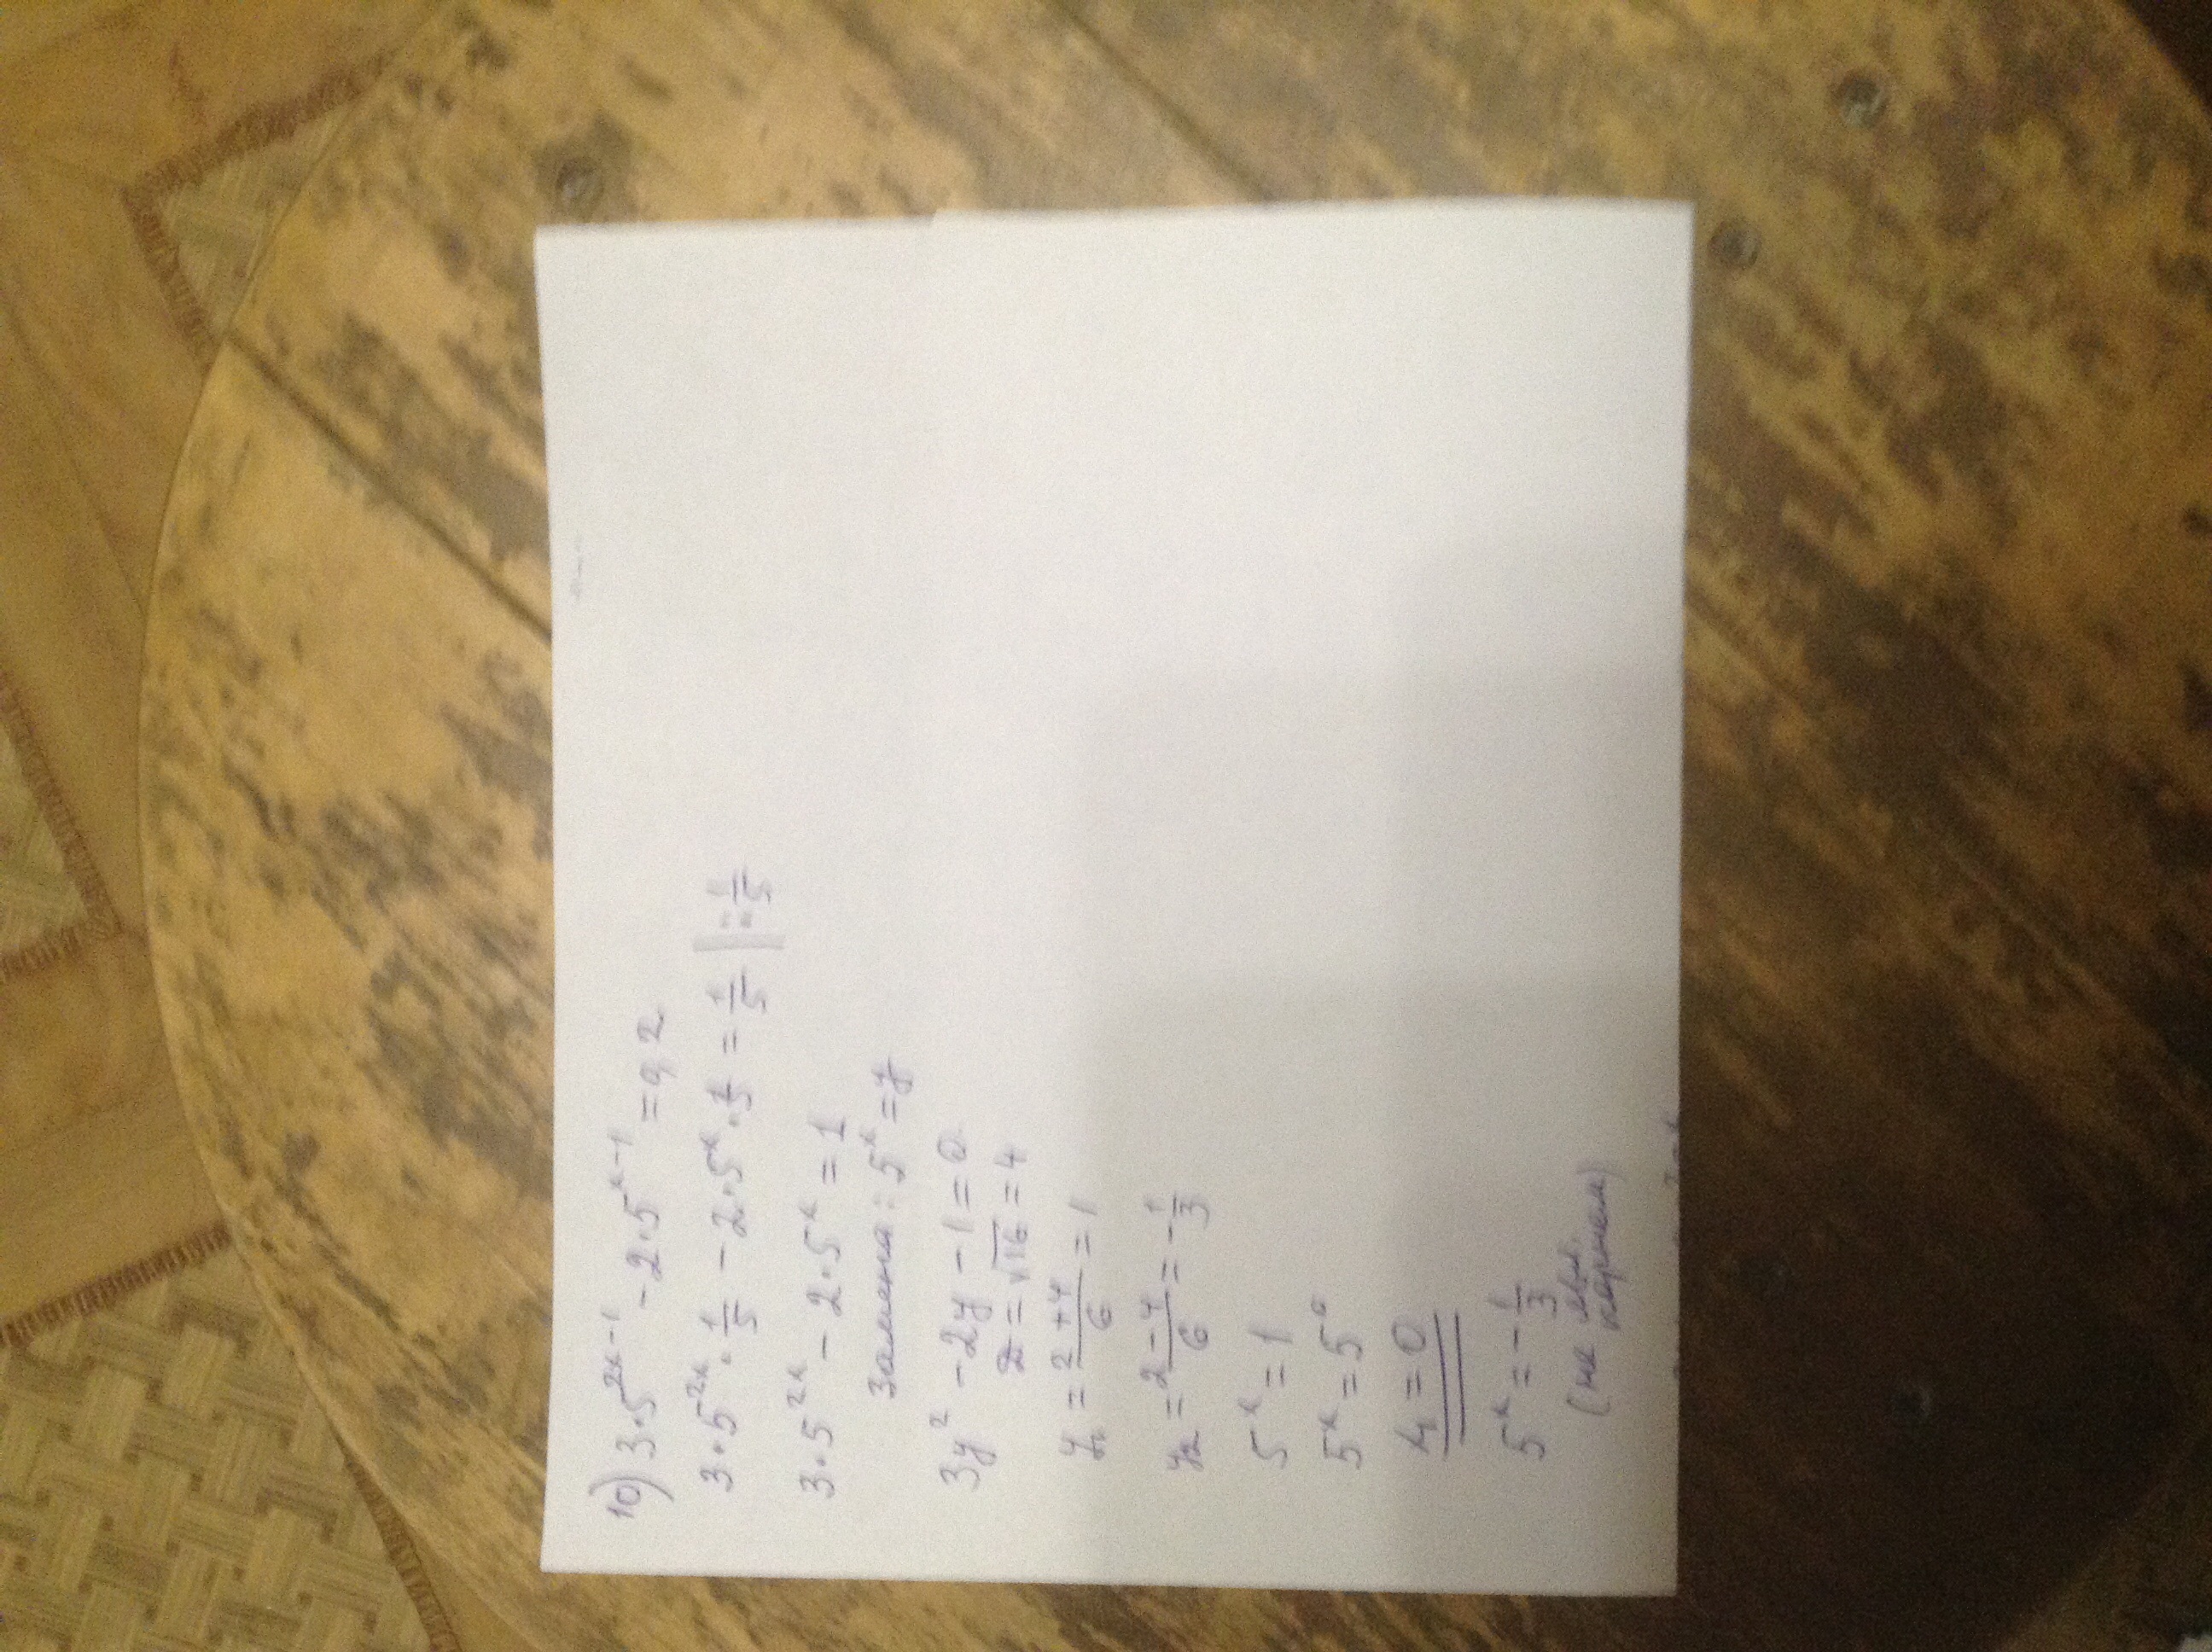 10) 3·5^{2x-1} - 2·5^{x-1} = 0,2
3·5^{2x}·1/5 - 2·5^x·1/5 = 1/5 | : 1/5
3·5^{2x} - 2·5^x = 1
замена: 5^x = y
3y² - 2y - 1 = 0
D = √16 = 4
y₁ = (2+4)/6 = 1
y₂ = (2-4)/6 = -1/3
5^x = 1
5^x = 5^0
x₁ = 0
5^x = -1/3
(не явл.
корнем)